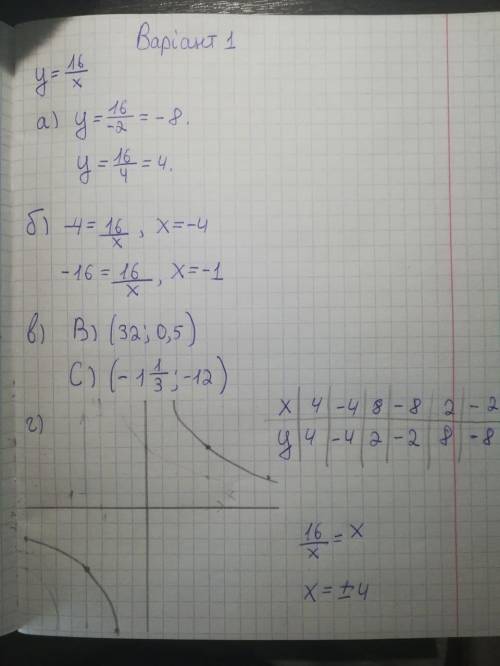 Варіант 1
y = 16/x
а) y = 16/-2 = -8.
y = 16/4 = 4.
б) -4 = 16/x , x = -4
-16 = 16/x , x = -1
в) В) (32; 0,5)
С) (-1 1/3; -12)
г)
x | 4 | -4 | 8 | -8 | 2 | -2
y | 4 | -4 | 2 | -2 | 8 | -8
16/x = x
x = ±4